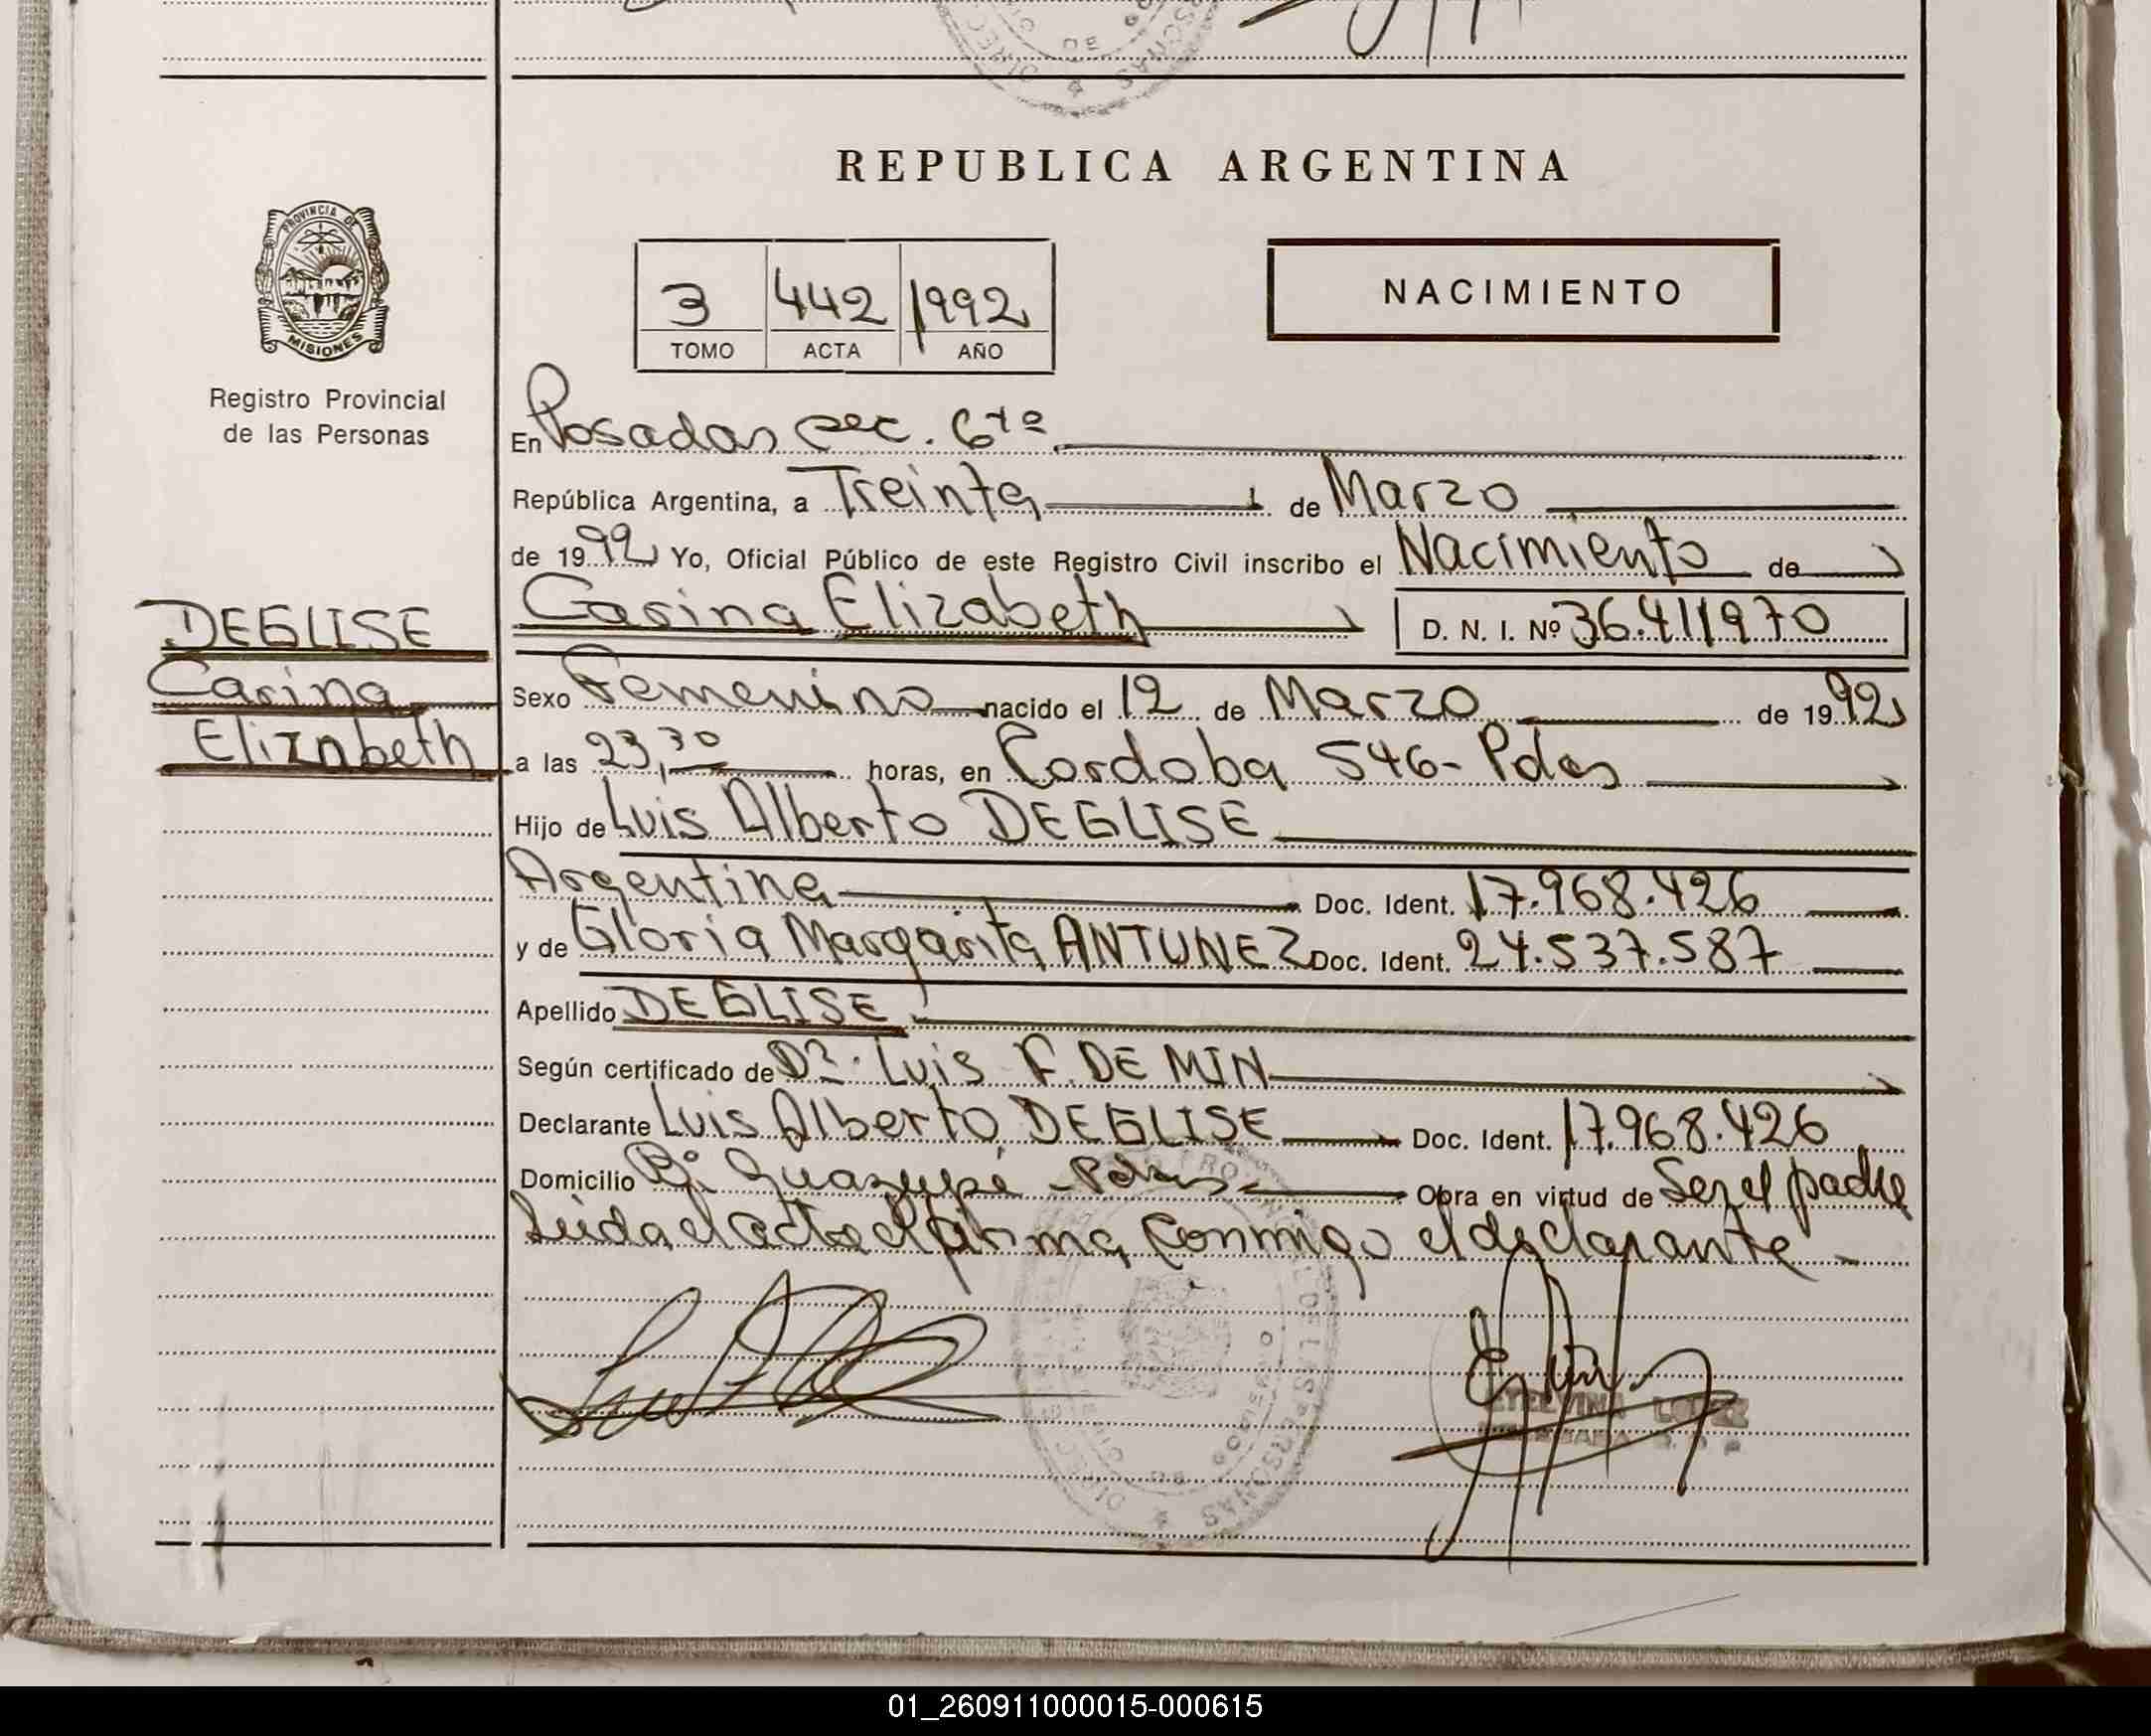 REPUBLICA ARGENTINA
PROVINCIA DE
MISIONES
Registro Provincial
de las Personas
3 442 1992
TOMO ACTA AÑO
NACIMIENTO
En Posadas sec. 6ta
República Argentina, a Treinta de Marzo
de 1992 Yo, Oficial Público de este Registro Civil inscribo el Nacimiento de
DEGLISE
Carina
Elizabeth
Carina Elizabeth D. N. I. Nº 36.411970
Sexo Femenino nacido el 12 de Marzo de 1992
a las 23,30 horas, en Cordoba 546- Pdas
Hijo de Luis Alberto DEGLISE
Argentina Doc. Ident. 17.968.426
y de Gloria Margarita ANTUNEZ Doc. Ident. 24.537.587
Apellido DEGLISE
Según certificado de Dr. Luis F. DE MIN
Declarante Luis Alberto DEGLISE Doc. Ident. 17.968.426
Domicilio Bº Guazupé - Pdas Obra en virtud de Ser el padre
Leida el acta la firma conmigo el declarante -
ETELVINA LOPEZ
01_260911000015-000615